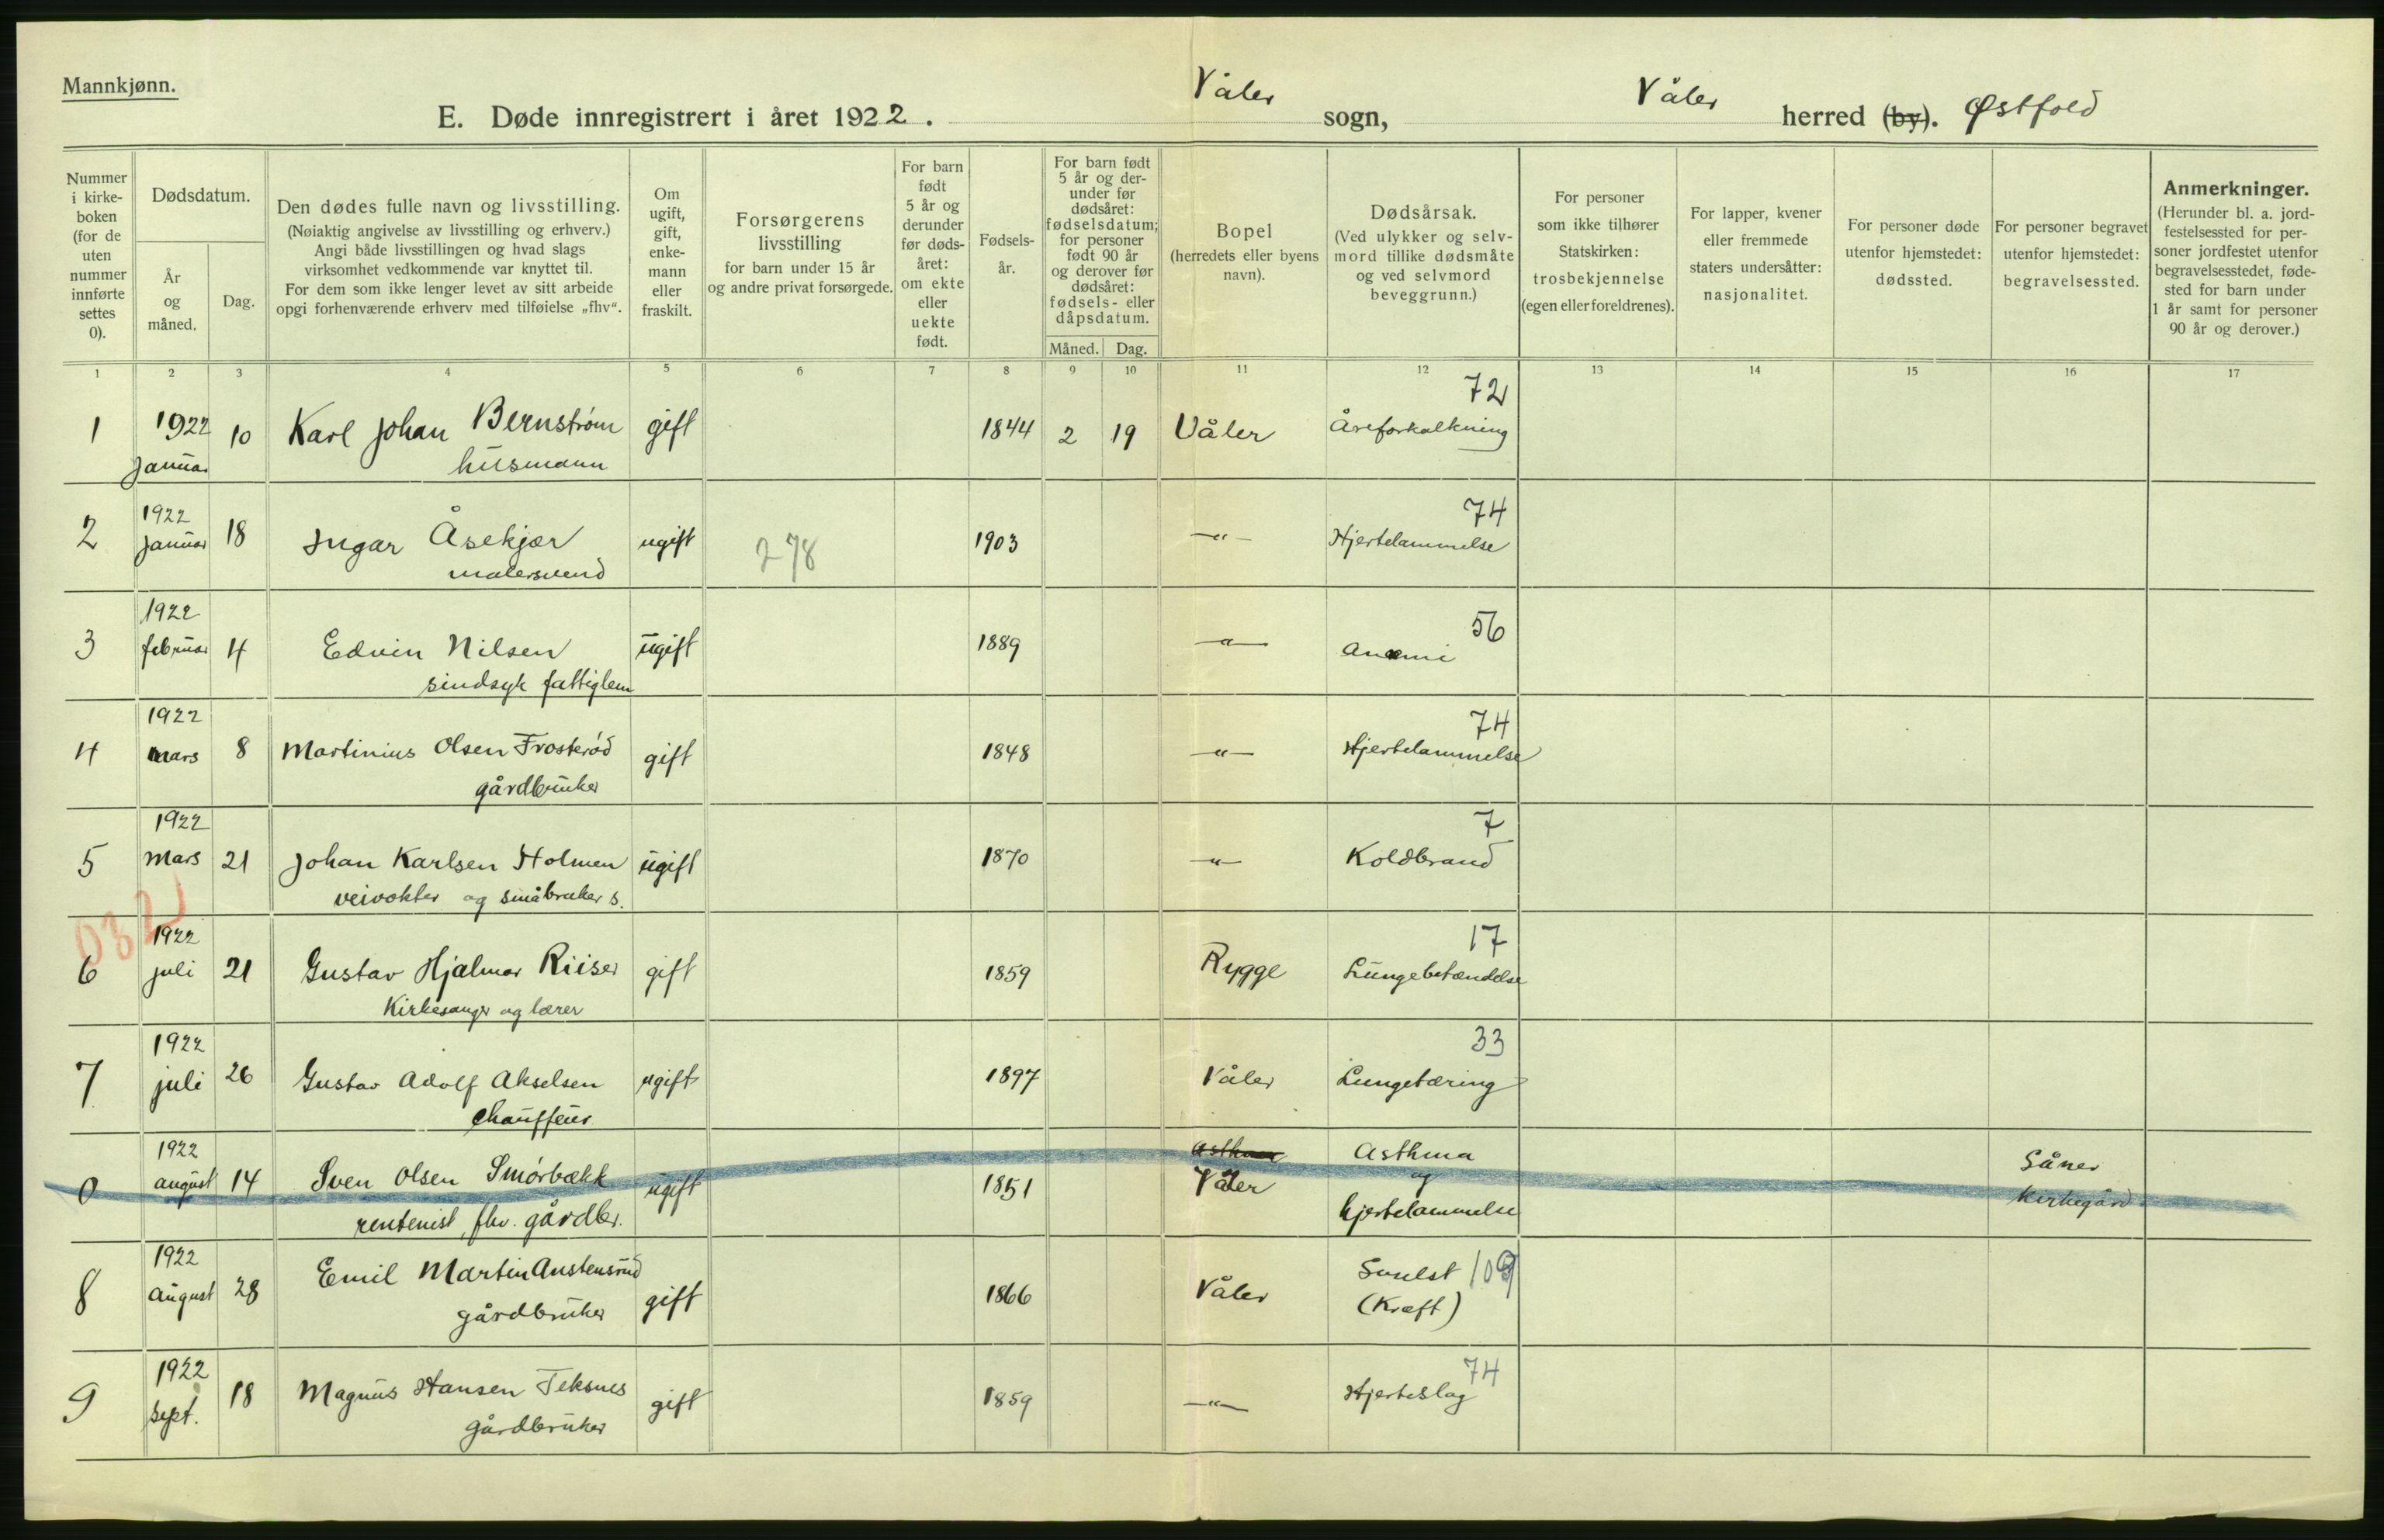 Mannkjønn.
E. Døde innregistrert i året 1922. Våler sogn, Våler herred (by). Østfold
Nummer i kirke-boken (for de uten nummer innførte settes 0).
Dødsdatum.
År og måned.
Dag.
Den dødes fulle navn og livsstilling.
(Nøiaktig angivelse av livsstilling og erhverv.)
Angi både livsstillingen og hvad slags
virksomhet vedkommende var knyttet til.
For dem som ikke lenger levet av sitt arbeide
opgi forhenværende erhverv med tilføielse „fhv“.
Om ugift, gift, enke-mann eller fraskilt.
Forsørgerens
livsstilling
for barn under 15 år
og andre privat forsørgede.
For barn født 5 år og derunder før døds-året: om ekte eller uekte født.
Fødsels-år.
For barn født 5 år og der-under før dødsåret: fødselsdatum; for personer født 90 år og derover før dødsåret: fødsels- eller dåpsdatum.
Måned. Dag.
Bopel
(herredets eller byens navn).
Dødsårsak.
(Ved ulykker og selv-mord tillike dødsmåte og ved selvmord beveggrunn.)
For personer som ikke tilhører Statskirken: trosbekjennelse (egen eller foreldrenes).
For lapper, kvener eller fremmede staters undersåtter: nasjonalitet.
For personer døde utenfor hjemstedet: dødssted.
For personer begravet utenfor hjemstedet: begravelsessted.
Anmerkninger.
(Herunder bl. a. jord-festelsessted for per-soner jordfestet utenfor begravelsesstedet, føde-sted for barn under 1 år samt for personer 90 år og derover.)
1 2 3 4 5 6 7 8 9 10 11 12 13 14 15 16 17
72
1 1922 10 Karl Johan Bernstrøm gift 1844 2 19 Våler Åreforkalkning
Januar husmann
1922 74
2 Januar 18 Ingar Åsekjær ugift 278 1903 —"— Hjertelammelse
malersvend
1922 56
3 februar 4 Edvin Nilsen ugift 1889 —"— Anæmi
sindsyk fattiglem
1922 74
4 mars 8 Martinius Olsen Frosterød gift 1848 —"— Hjertelammelse
gårdbruker
1922 7
5 mars 21 Johan Karlsen Holmen ugift 1870 —"— Koldbrand
veivokter og småbruker s.
032
1922 17
6 juli 21 Gustav Hjalmar Riiser gift 1859 Rygge Lungebetændelse
Kirkesanger og lærer
1922 33
7 juli 26 Gustav Adolf Akselsen ugift 1897 Våler Lungetæring
Chauffeur
1922 Asthma Asthma Såner
0 august 14 Sven Olsen Smørbækk ugift 1851 Våler og Kirkegård
rentenist, fhv. gårdbr. hjertelammelse
1922
8 August 28 Emil Martin Austensrud gift 1866 Våler Svulst 109
gårdbruker (Kræft)
1922 74
9 Sept. 18 Magnus Hansen Teksnes gift 1859 —"— Hjerteslag
gårdbruker